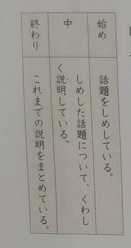 始め
話題をしめしている。
中
しめした話題について、くわし
く説明している。
終わり
これまでの説明をまとめている。